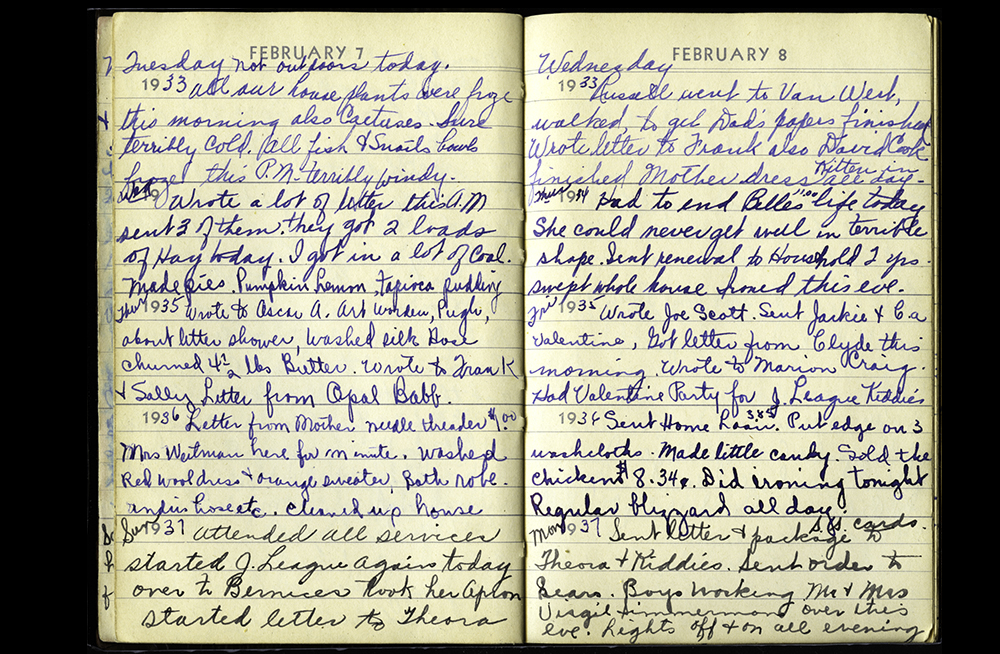 FEBRUARY 7
Tuesday not outdoors today.
1933 All our house plants were froze
this morning also Cactuses. Sure
terribly cold. All fish & Snails bowls
froze this P.M. terribly windy.
Wed 19 Wrote a lot of letter this A.M
sent 3 of them. they got 2 loads
of Hay today. I got in a lot of Coal.
Made pies. Pumpkin Lemon, tapioca pudding
Thur 1935 Wrote to Oscar A. Art Worden, Pugh,
about letter shower, washed silk Hose
churned 4½ lbs Butter. Wrote to Frank
& Sally Letter from Opal Babb.
1936 Letter from Mother needle threader $1.00
Mrs Weitman here for minute. washed
Red wool dress & orange sweater, Bath robe.
hose etc. cleaned up house
Sun 1937 attended all services
started J. League again today
over to Bernices took her Apron
started letter to Theora
FEBRUARY 8
Wednesday
1933 Russell went to Van Wert,
walked, to get Dad's papers finished
Wrote letter to Frank also David Cook
finished Mother dress all day - Kitten in
Thur 1934 Had to end Belle's life today 11:00
She could never get well in terrible
shape. Sent renewal to Household 2 yrs.
swept whole house Ironed this eve.
Fri 1935 Wrote Joe Scott. Sent Jackie & E a
Valentine, Got letter from Clyde this
morning. Wrote to Marion Craig.
Had Valentine Party for J. League Kiddies
1936 Sent Home Loan 3.85. Put edge on 3
washcloths. Made little candy. Sold the
chickens $8.34¢. Did ironing tonight
Regular blizzard all day.
Mon 1937 Sent letter & package S.S. cards. to
Theora & Kiddies. Sent order to
Sears. Boys working Mr & Mrs
Virgil Zimmerman over this
eve. Lights off & on all evening